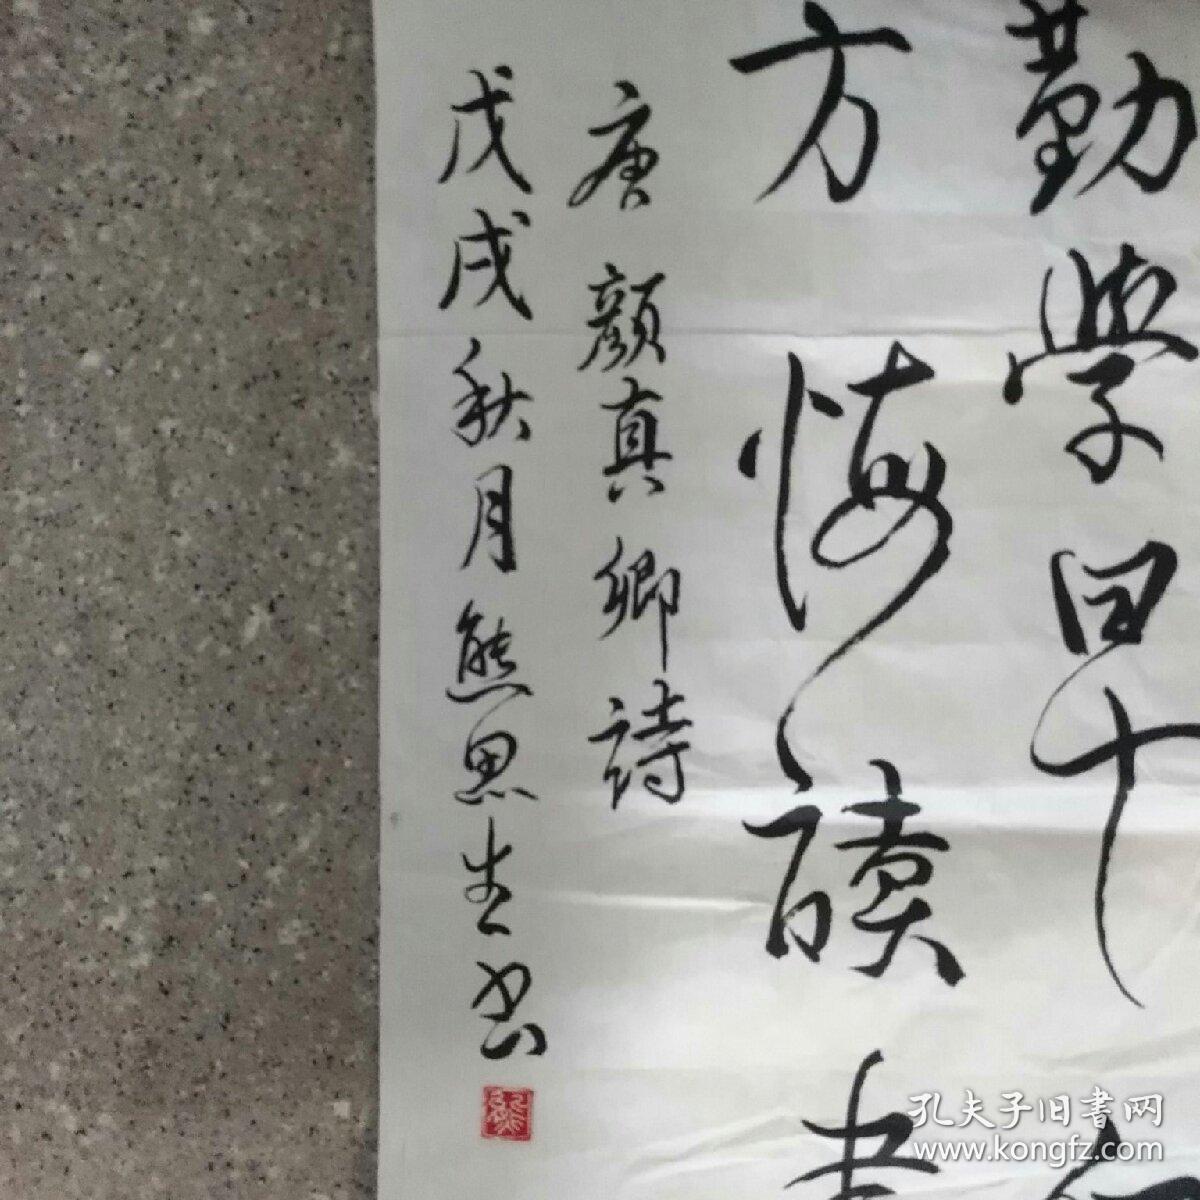 勤学早
方悔读书
唐颜真卿詩
戊戌秋月熊思生书
孔夫子旧書网
www.kongfz.com